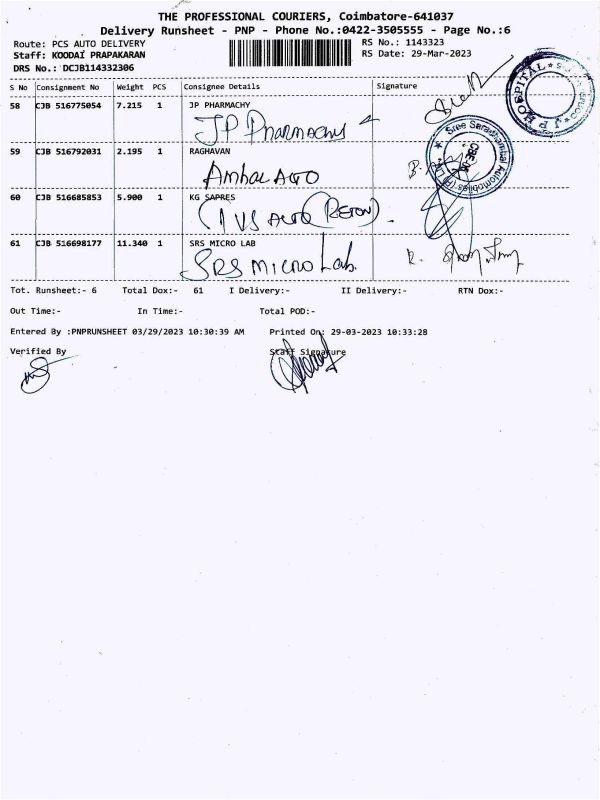 THE PROFESSIONAL COURIERS, Coimbatore-641037
Delivery Runsheet - PNP - Phone No.:0422-3505555 - Page No.:6
Route: PCS AUTO DELIVERY
RS No.: 1143323
Staff: KOODAI PRAPAKARAN
RS Date: 29-Mar-2023
DRS No.: DCJB114332306
S No Consignment No Weight PCS Consignee Details Signature
58 CJB 516775054 7.215 1 JP PHARMACHY
JP Pharmachy
HOSPITAL
59 CJB 516792031 2.195 1 RAGHAVAN
Ambal Auto
Sree Saradhambal Automobiles (P) Ltd
CBE
60 CJB 516685853 5.900 1 KG SAPRES
61 CJB 516698177 11.340 1 SRS MICRO LAB
SRS MICRO Lab.
Tot. Runsheet:- 6 Total Dox:- 61 I Delivery:- II Delivery:- RTN Dox:-
Out Time:- In Time:- Total POD:-
Entered By :PNPRUNSHEET 03/29/2023 10:30:39 AM Printed On: 29-03-2023 10:33:28
Verified By Staff Signature